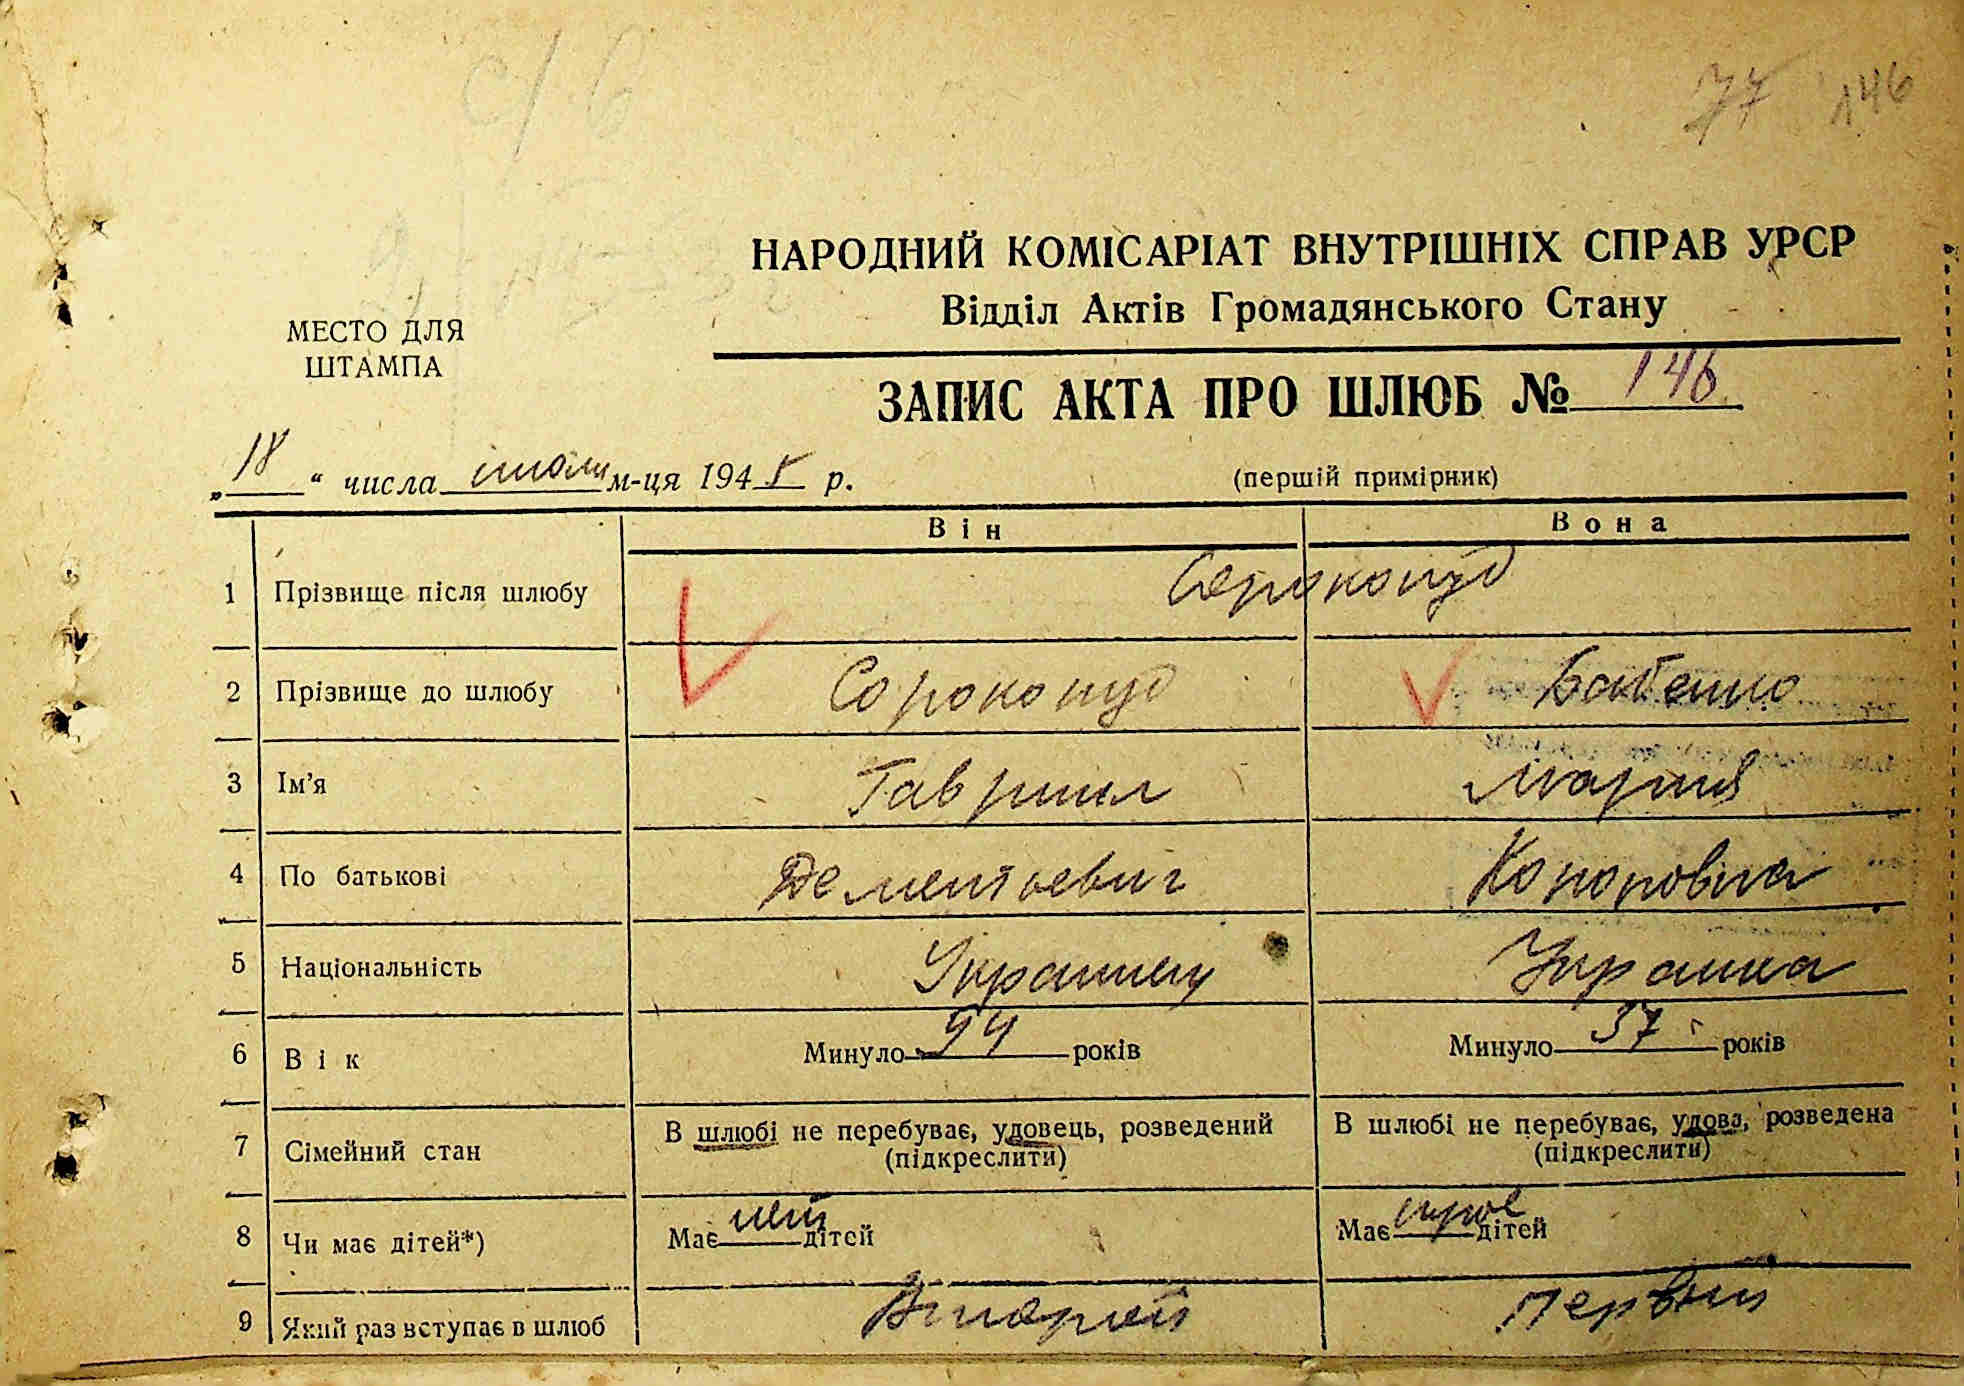 77 146
НАРОДНИЙ КОМІСАРІАТ ВНУТРІШНІХ СПРАВ УРСР
Відділ Актів Громадянського Стану
МЕСТО ДЛЯ
ШТАМПА
ЗАПИС АКТА ПРО ШЛЮБ № 146
„18“ числа июля м-ця 1945 р.
(першій примірник)
Він Вона
1 Прізвище після шлюбу Сорокопуд
2 Прізвище до шлюбу Сорокопуд Бабенко
3 Ім'я Гавриил Мария
4 По батькові Дементьевич Кононовна
5 Національність Украинец Украинка
6 Вік Минуло 44 років Минуло 37 років
7 Сімейний стан В шлюбі не перебуває, удовець, розведений В шлюбі не перебуває, удова, розведена
(підкреслити) (підкреслити)
8 Чи має дітей*) Має нет дітей Має трое дітей
9 Який раз вступає в шлюб Второй Первый